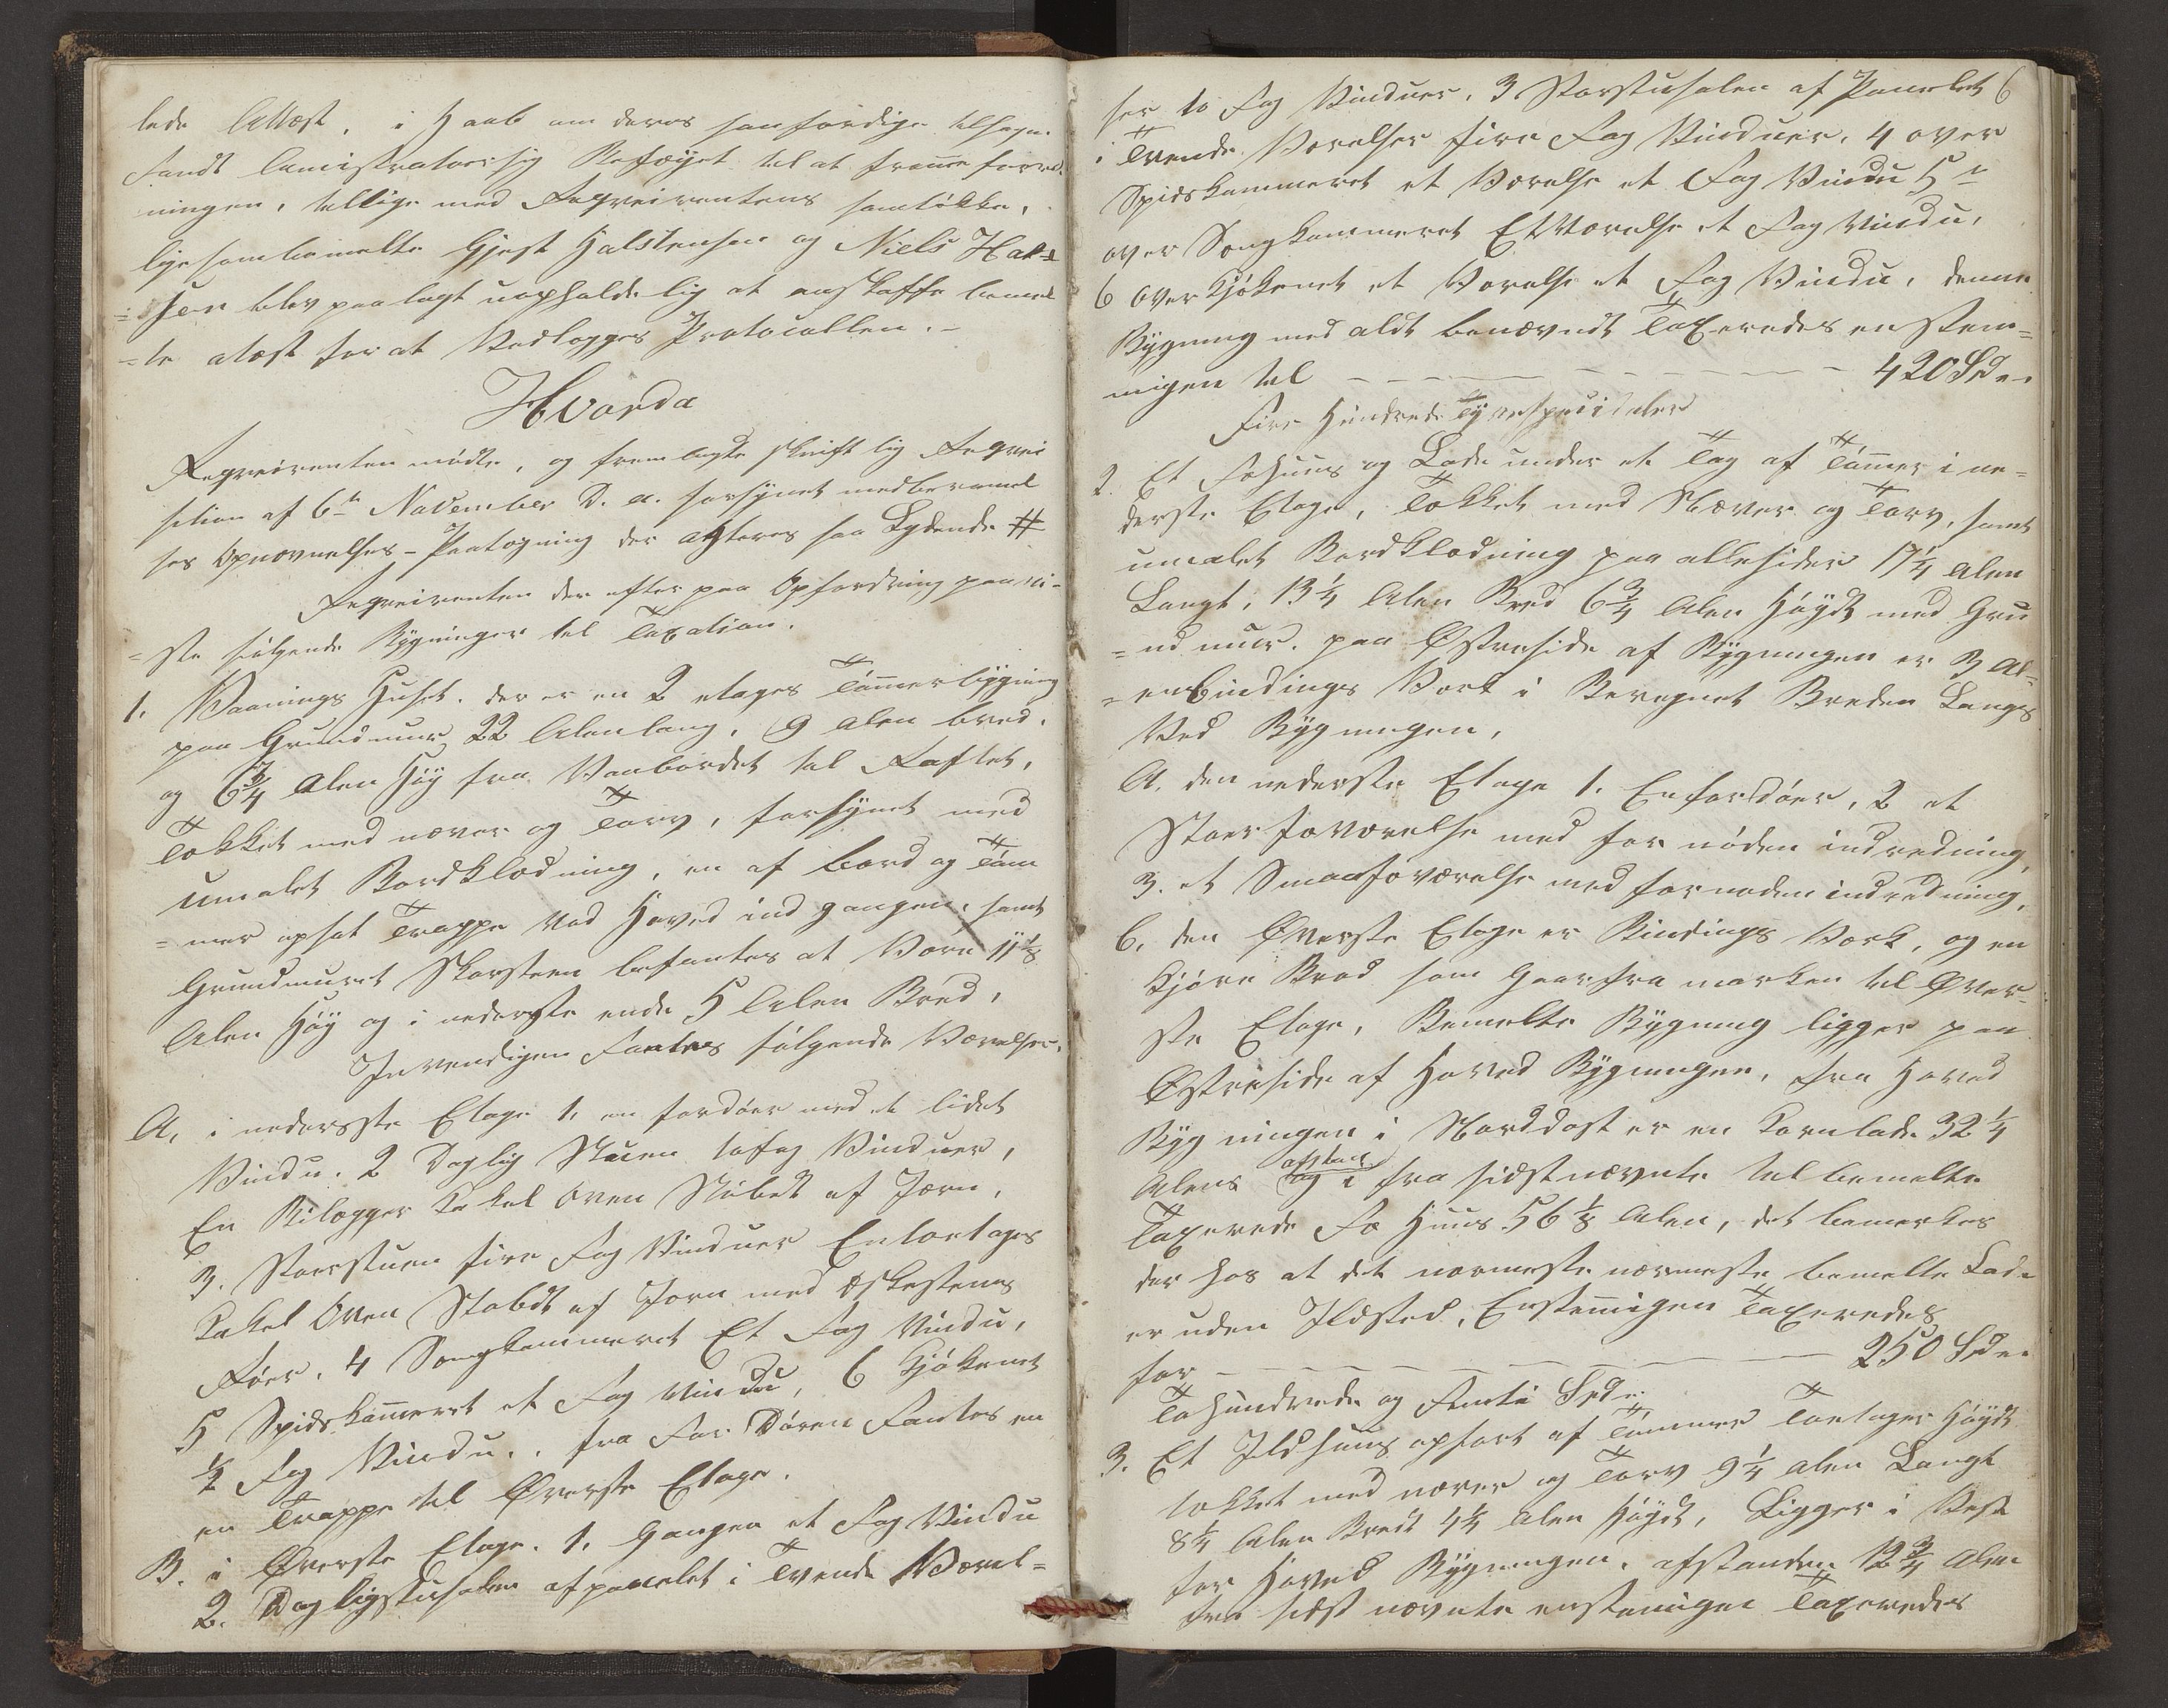 lede Attest, i Haab om deres sanfærdige tilsagn
fandt Laugistrator sig Beføyet til at fremme forret-
ningen, tillige med Reqvirentens samtykke,
lige som bemelte Gjest Halstensen og Niels Hal-
=sen blev paalagt uopholdelig at anskaffe bemel
=te atest for at Vedlægges Protocollen.-
Hvarda
Reqvirenten mødte, og fremlagte skriftlig Reqvi
sition af 6te November D. a. forsynet med berammel
ses Opnævnelses-Paategning der acteres saa Lydende #
Reqvirenten der efter paa Opfordring paavi-
=ste følgende Bygninger til Taxation.
1. Vaanings Huset. der er en 2 etages Tømmerbygning
paa Grundmuur 22 Alen lang, 9 Alen bred.
og 6 3/4 Alen Høy fra Vanbordet til Raftet,
Tækket med næver og Torv, forsynet med
umalet Bordklædning, en af Bord og Tøm
=mer opsat Trappe Ved Hoved ind gangen, samt
Grundmuret Skorsteen befantes at Være 11 1/8
Alen Høy og i nederste ende 5 Alen Bred,
Invendigen Fantes følgende Værelser.
A, i nedersste Etage 1, en fordør med et lidet
Vindu. 2 Daglig Stuen to fag Vinduer,
En Bilægger Kakel Oven Støbt af Jærn,
3. Storstuen fire Fag Vinduer En toetages
Kakel Oven Støbt af Jærn med Askestens
Rør, 4 Sengkammeret Et Fag Vindu,
5 Spidskammeret et Fag Vindu, 6 Kjøkenet
1/2 Fag Vindu.. fra For Døren Fantes en
en Trappe til Øverste Etage.
B. i Øverste Etage. 1. Gangen et Fag Vindu
2. Dagligstusalen afpanelet i Tvende Værel=
ser to Fag Vinduer, 3 Storstusalen af Panelet 6
i Tvende Værelser fire Fag Vinduer, 4 over
Spidskammeret et Værelse et Fag Vindu 5te
over Sengkammeret Et Værelse et Fag Vindu,
6 over Kjøkenet et Værelse et Fag Vindu, denne
Bygning med aldt benævndt Taxeredes en stem=
migen til - - - - - - - - - 420 Spd..
Fire Hundrede Tyvespecidaler
2. Et Fæhuus og Lade under et Tag af Tømmer i ne=
derste Etage, Tækket med Næver og Torv, samt
umalet Bordklædning paa allesider 17 1/4 Alen
Langt, 13 1/4 Alen Bred 6 3/4 Alen Høydt med Gru
=nd muur. paa Østreside af Bygningen er 3 Al=
=en Bindings Værk i Beregnet Breden Langs
Ved Bygningen,
A. den nederste Etage 1. En fordør, 2 et
Stoer fæværelse med for nøden indredning,
3. et Smaafæværelse med fornøden indredning,
B. den Øverste Etage er Bindings Værk, og en
Kjøre Broe som Gaar fra marken til Øver-
ste Etage, Bemelte Bygning ligger paa
Østreside af Hoved Bygningen, fra Hoved
Bygningen i Nordost er en Kornlade 32 1/4
Alens afstand og i fra sidstnævnte til bemelte
Taxerede Fæ Huus 56 1/8 Alen, det bemerkes
der hos at det nærmeste nærmeste bemelte Lade
er uden Ildsted, Enstemigen Taxeredes
for - - - - - - - - - - 250 Spd..
Tohundrede og Femti Spd..
3. Et Ildhuus opført af Tømmer Toetager Høydt
tækket med næver og Torv 9 1/4 Alen Langt
8 1/4 Alen Bredt 4 1/4 Alen Høydt, Ligger i Vest
for Hoved Bygningen, afstanden 12 3/4 Alen
fra sidst nævnte enstemigen Taxeredes